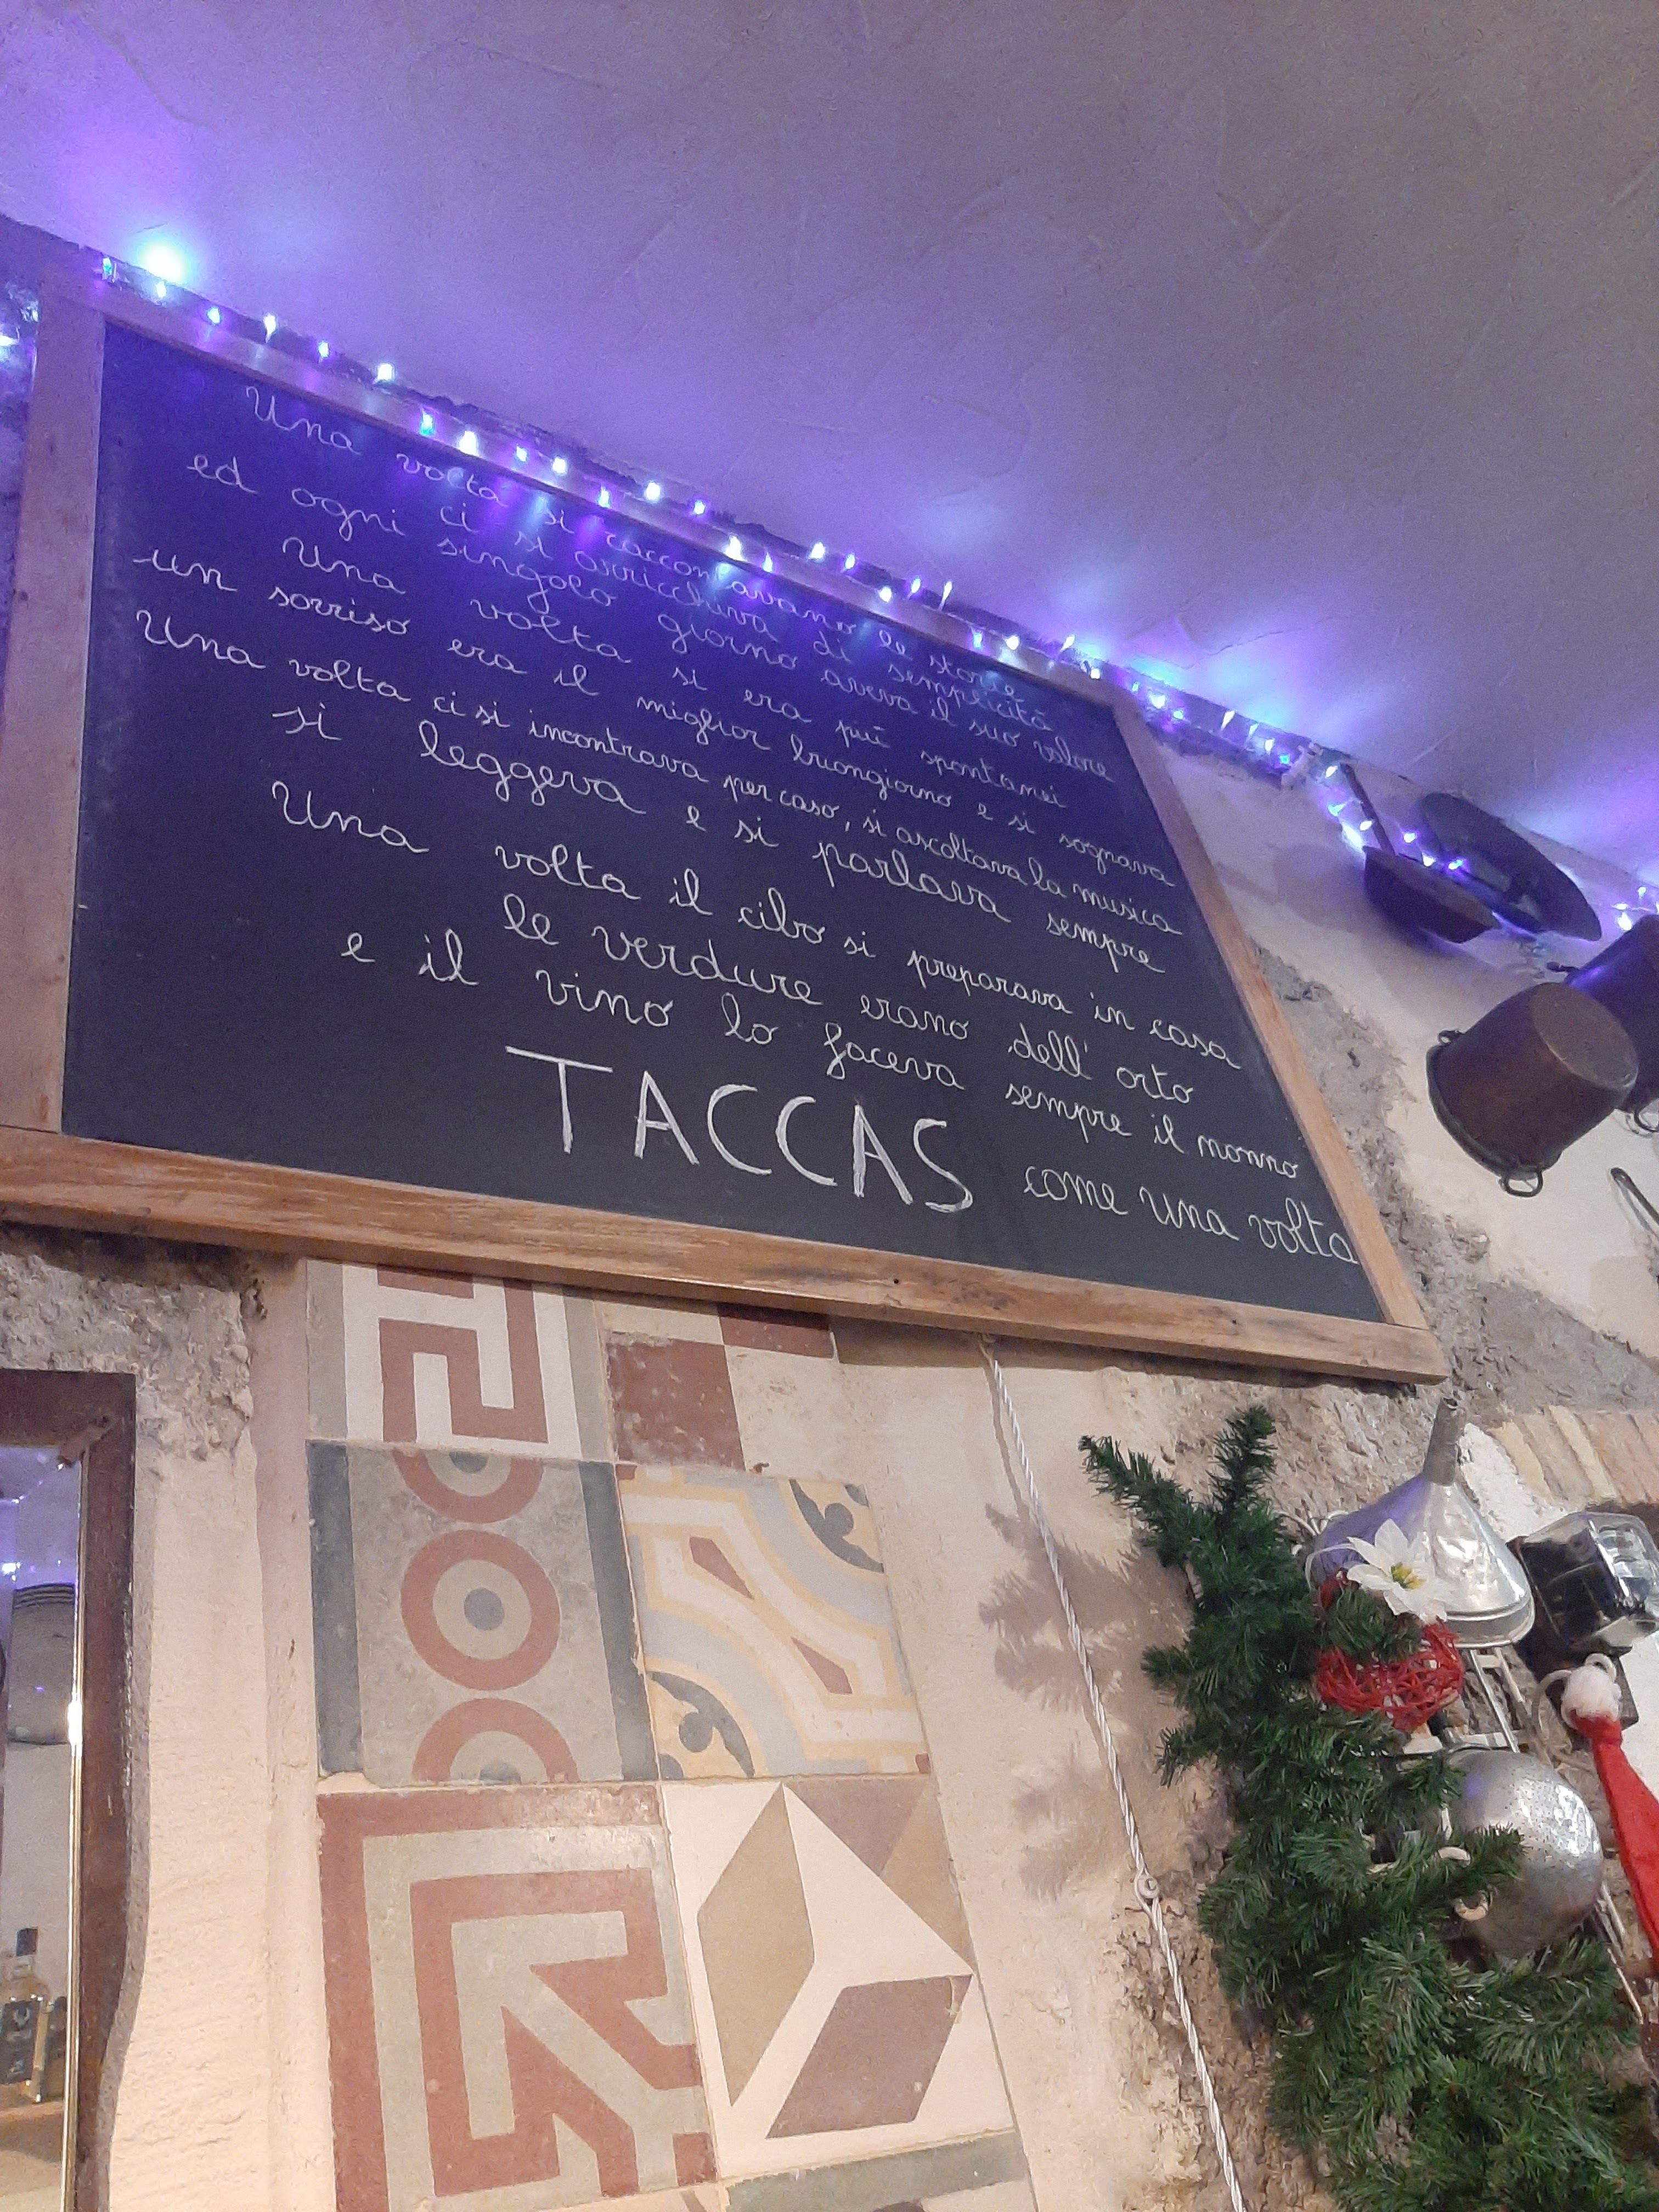 Una volta si raccontavano le storie
ci si arricchiva di semplicità
ed ogni singolo giorno aveva il suo valore
Una volta si era più spontanei
un sorriso era il miglior buongiorno e si sognava
Una volta ci si incontrava per caso, si ascoltava la musica
si leggeva e si parlava sempre
Una volta il cibo si preparava in casa
le verdure erano dell' orto
e il vino lo faceva sempre il nonno
TACCAS come una volta